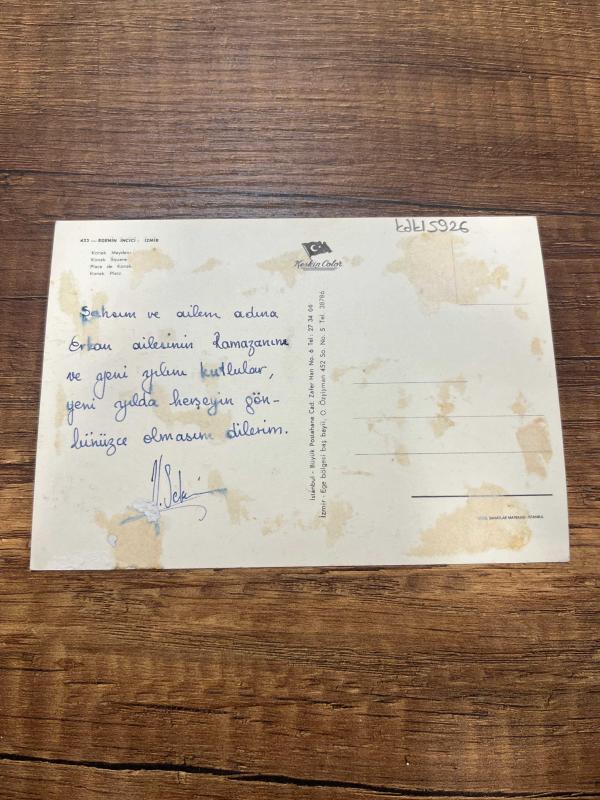 kdk15926
422 — EGENİN İNCİCİ : İZMİR
Konak Meydanı
Konak Square
Place de Konak
Konak Platz
Keskin Color
Şahsım ve ailem adına
Erkan ailesinin Ramazanını
ve yeni yılını kutlular,
yeni yılda herşeyin gön-
lünüzce olmasını dilerim.
İstanbul - Büyük Postahane Cad. Zafer Han No. 6 Tel : 27 34 04
İzmir - Ege bölgesi baş bayii, O. Özyiyman 452 So. No. 5 Tel. 38786
SANATLAR MATBAASI - İSTANBUL